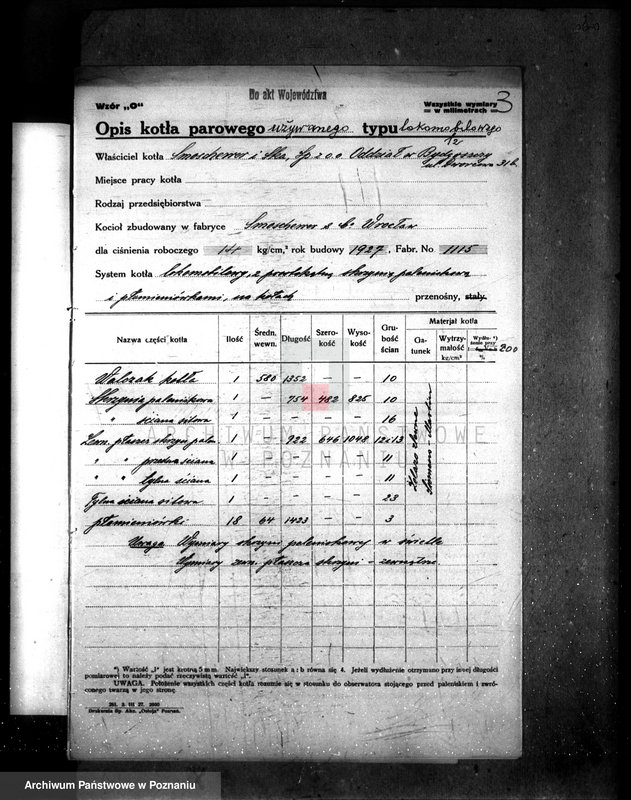 Do akt Województwa
Wzór „O"
Wszystkie wymiary
— w milimetrach —
3
Opis kotła parowego używanego typu lokomobilowego
12
Właściciel kotła Smoschewer i Ska, Sp z o.o Oddział w Bydgoszczy
ul. Dworcowa 31 b.
Miejsce pracy kotła
Rodzaj przedsiębiorstwa
Kocioł zbudowany w fabryce Smoschewer s. Co Wrocław
dla ciśnienia roboczego 14 kg/cm,² rok budowy 1927, Fabr. No 1115
System kotła lokomobilowy, z prostokątną skrzynią paleniskową
i płomieniówkami, na kołach przenośny, stały.
Nazwa części kotła Ilość Średn. wewn. Długość Szerokość Wysokość Grubość ścian Materjał kotła
Gatunek Wytrzymałość kg/cm² Wydłużenie przy *) %
200
Walczak kotła 1 580 1352 — — 10
Skrzynia paleniskowa 1 — 754 482 825 10
" ściana sitowa 1 — — — — 16
Zewn. płaszcz skrzyn palen 1 — 922 646 1048 12 i 13
" " przednia ściana 1 — — — — 11
" " tylna ściana 1 — — — — 11
Tylna ściana sitowa 1 — — — — 23
płomieniówki 18 64 1423 — — 3
Żelazo zlewne
Siemens-Martin
Uwaga Wymiary skrzyni paleniskowej w świetle
Wymiary zewn. płaszcza skrzyni – zewnętrzne.
ARCHIWUM PAŃSTWOWE
W POZNANIU
*) Wartość „l" jest krotną 5 mm. Największy stosunek a : b równa się 4. Jeżeli wydłużenie otrzymano przy innej długości
pomiarowej to należy podać rzeczywistą wartość „l".
UWAGA. Położenie wszystkich części kotła rozumie się w stosunku do obserwatora stojącego przed paleniskiem i zwróconego twarzą w jego stronę.
Drukarnia Sp. Akc. „Ostoja" Poznań.
Archiwum Państwowe w Poznaniu